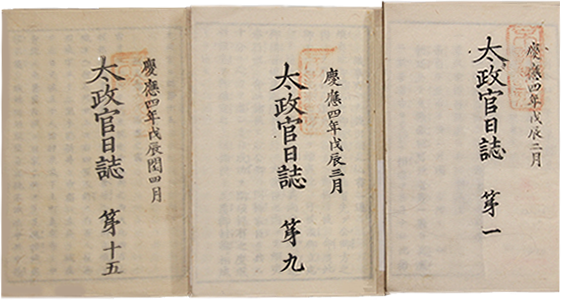 慶應四年戊辰二月
太政官日誌 第一
慶應四年戊辰三月
太政官日誌 第九
慶應四年戊辰閏四月
太政官日誌 第十五